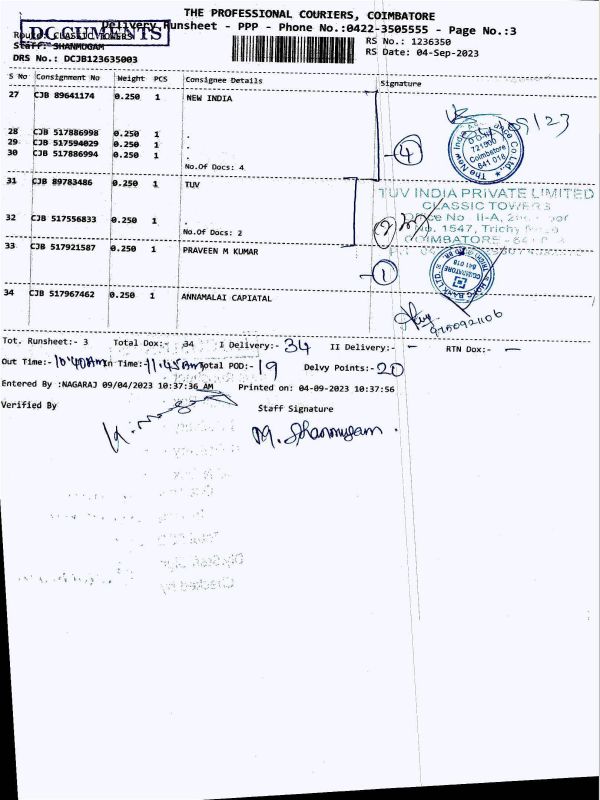 THE PROFESSIONAL COURIERS, COIMBATORE
Delivery Runsheet - PPP - Phone No.:0422-3505555 - Page No.:3
DOCUMENTS
Route: CLASSIC TOWERS
RS No.: 1236350
Staff: SHANMUGAM
RS Date: 04-Sep-2023
DRS No.: DCJB123635003
S No Consignment No Weight PCS Consignee Details Signature
27 CJB 89641174 0.250 1 NEW INDIA
28 CJB 517886998 0.250 1 .
29 CJB 517594029 0.250 1 .
30 CJB 517886994 0.250 1 .
No.Of Docs: 4
4
The New India Assurance Co. Ltd.
D.O.
721900
Coimbatore
641 018
31 CJB 89783486 0.250 1 TUV
TUV INDIA PRIVATE LIMITED
CLASSIC TOWERS
Office No II-A, 2nd Floor
No. 1547, Trichy Road
COIMBATORE - 641
32 CJB 517556833 0.250 1 .
No.Of Docs: 2
2
33 CJB 517921587 0.250 1 PRAVEEN M KUMAR
1
COIMBATORE
641 018
34 CJB 517967462 0.250 1 ANNAMALAI CAPIATAL
9750921106
Tot. Runsheet:- 3 Total Dox:- 34 I Delivery:- 34 II Delivery:- - RTN Dox:- -
Out Time:- 10:40Am In Time:- 11:45Am Total POD:- 19 Delvy Points:- 20
Entered By :NAGARAJ 09/04/2023 10:37:36 AM Printed on: 04-09-2023 10:37:56
Verified By Staff Signature
M. Shanmugam .